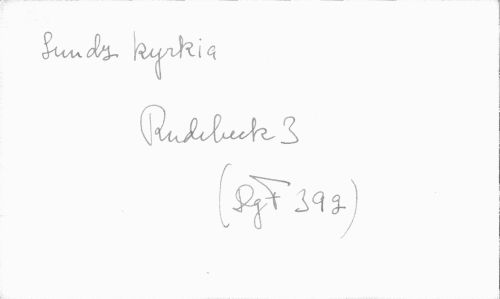 Lunds kyrkia
Rudebeck 3
(DgF 399)